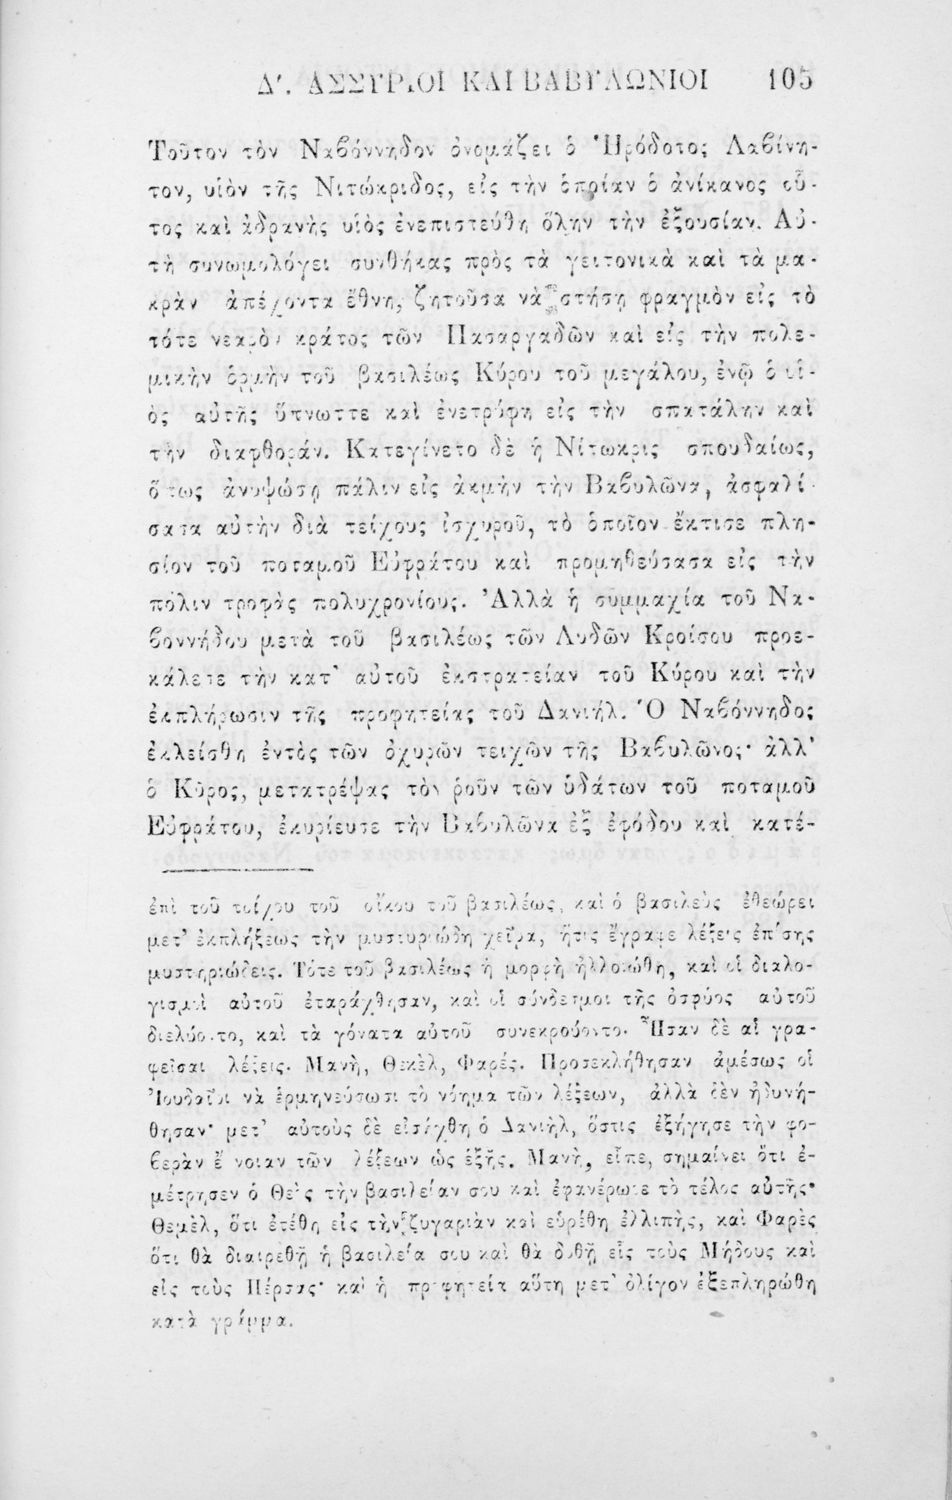 Δʹ. ΑΣΣΥΡΙΟΙ ΚΑΙ ΒΑΒΥΛΩΝΙΟΙ 105
Τοῦτον τὸν Ναβόννηδον ὀνομάζει ὁ Ἡρόδοτος Λαβίνη-
τον, υἱὸν τῆς Νιτώκριδος, εἰς τὴν ὁποίαν ὁ ἀνίκανος οὗ-
τος καὶ ἀδρανὴς υἱὸς ἐνεπιστεύθη ὅλην τὴν ἐξουσίαν. Αὐ-
τὴ συνωμολόγει συνθήκας πρὸς τὰ γειτονικὰ καὶ τὰ μα-
κρὰν ἀπέχοντα ἔθνη, ζητοῦσα νὰ στήσῃ φραγμὸν εἰς τὸ
τότε νεαρὸν κράτος τῶν Πασαργαδῶν καὶ εἰς τὴν πολε-
μικὴν ὁρμὴν τοῦ βασιλέως Κύρου τοῦ μεγάλου, ἐνῷ ὁ υἱ-
ὸς αὐτῆς ὕπνωττε καὶ ἐνετρύφη εἰς τὴν σπατάλην καὶ
τὴν διαφθοράν. Κατεγίνετο δὲ ἡ Νίτωκρις σπουδαίως,
ὅπως ἀνυψώσῃ πάλιν εἰς ἀκμὴν τὴν Βαβυλῶνα, ἀσφαλί-
σασα αὐτὴν διὰ τείχους ἰσχυροῦ, τὸ ὁποῖον ἔκτισε πλη-
σίον τοῦ ποταμοῦ Εὐφράτου καὶ προμηθεύσασα εἰς τὴν
πόλιν τροφὰς πολυχρονίους. Ἀλλὰ ἡ συμμαχία τοῦ Να-
βοννήδου μετὰ τοῦ βασιλέως τῶν Λυδῶν Κροίσου προε-
κάλεσε τὴν κατ' αὐτοῦ ἐκστρατείαν τοῦ Κύρου καὶ τὴν
ἐκπλήρωσιν τῆς προφητείας τοῦ Δανιήλ. Ὁ Ναβόννηδος
ἐκλείσθη ἐντὸς τῶν ὀχυρῶν τειχῶν τῆς Βαβυλῶνος· ἀλλ'
ὁ Κῦρος, μετατρέψας τὸν ῥοῦν τῶν ὑδάτων τοῦ ποταμοῦ
Εὐφράτου, ἐκυρίευσε τὴν Βαβυλῶνα ἐξ ἐφόδου καὶ κατέ-
ἐπὶ τοῦ τοίχου τοῦ οἴκου τοῦ βασιλέως, καὶ ὁ βασιλεὺς ἐθεώρει
μετ' ἐκπλήξεως τὴν μυστυριώδη χεῖρα, ἥτις ἔγραφε λέξεις ἐπ' σης
μυστηριώδεις. Τότε τοῦ βασιλέως ἡ μορφὴ ἠλλοιώθη, καὶ οἱ διαλο-
γισμοὶ αὐτοῦ ἐταράχθησαν, καὶ οἱ σύνδεσμοι τῆς ὀσφύος αὐτοῦ
διελύοντο, καὶ τὰ γόνατα αὐτοῦ συνεκρούοντο. Ἦσαν δὲ αἱ γρα-
φεῖσαι λέξεις. Μανὴ, Θεκὲλ, Φαρές. Προσεκλήθησαν ἀμέσως οἱ
Ἰουδαῖοι νὰ ἑρμηνεύσωσι τὸ νόημα τῶν λέξεων, ἀλλὰ δὲν ἠδυνή-
θησαν· μετ' αὐτοὺς δὲ εἰσήχθη ὁ Δανιὴλ, ὅστις ἐξήγησε τὴν φο-
βερὰν ἔννοιαν τῶν λέξεων ὡς ἑξῆς. Μανὴ, εἶπε, σημαίνει ὅτι ἐ-
μέτρησεν ὁ Θεὸς τὴν βασιλείαν σου καὶ ἐφανέρωσε τὸ τέλος αὐτῆς·
Θεμὲλ, ὅτι ἐτέθη εἰς τὴν ζυγαριὰν καὶ εὑρέθη ἐλλιπὴς, καὶ Φαρὲς
ὅτι θὰ διαιρεθῇ ἡ βασιλεία σου καὶ θὰ δοθῇ εἰς τοὺς Μήδους καὶ
εἰς τοὺς Πέρσας· καὶ ἡ προφητεία αὕτη μετ' ὀλίγον ἐξεπληρώθη
κατὰ γράμμα.